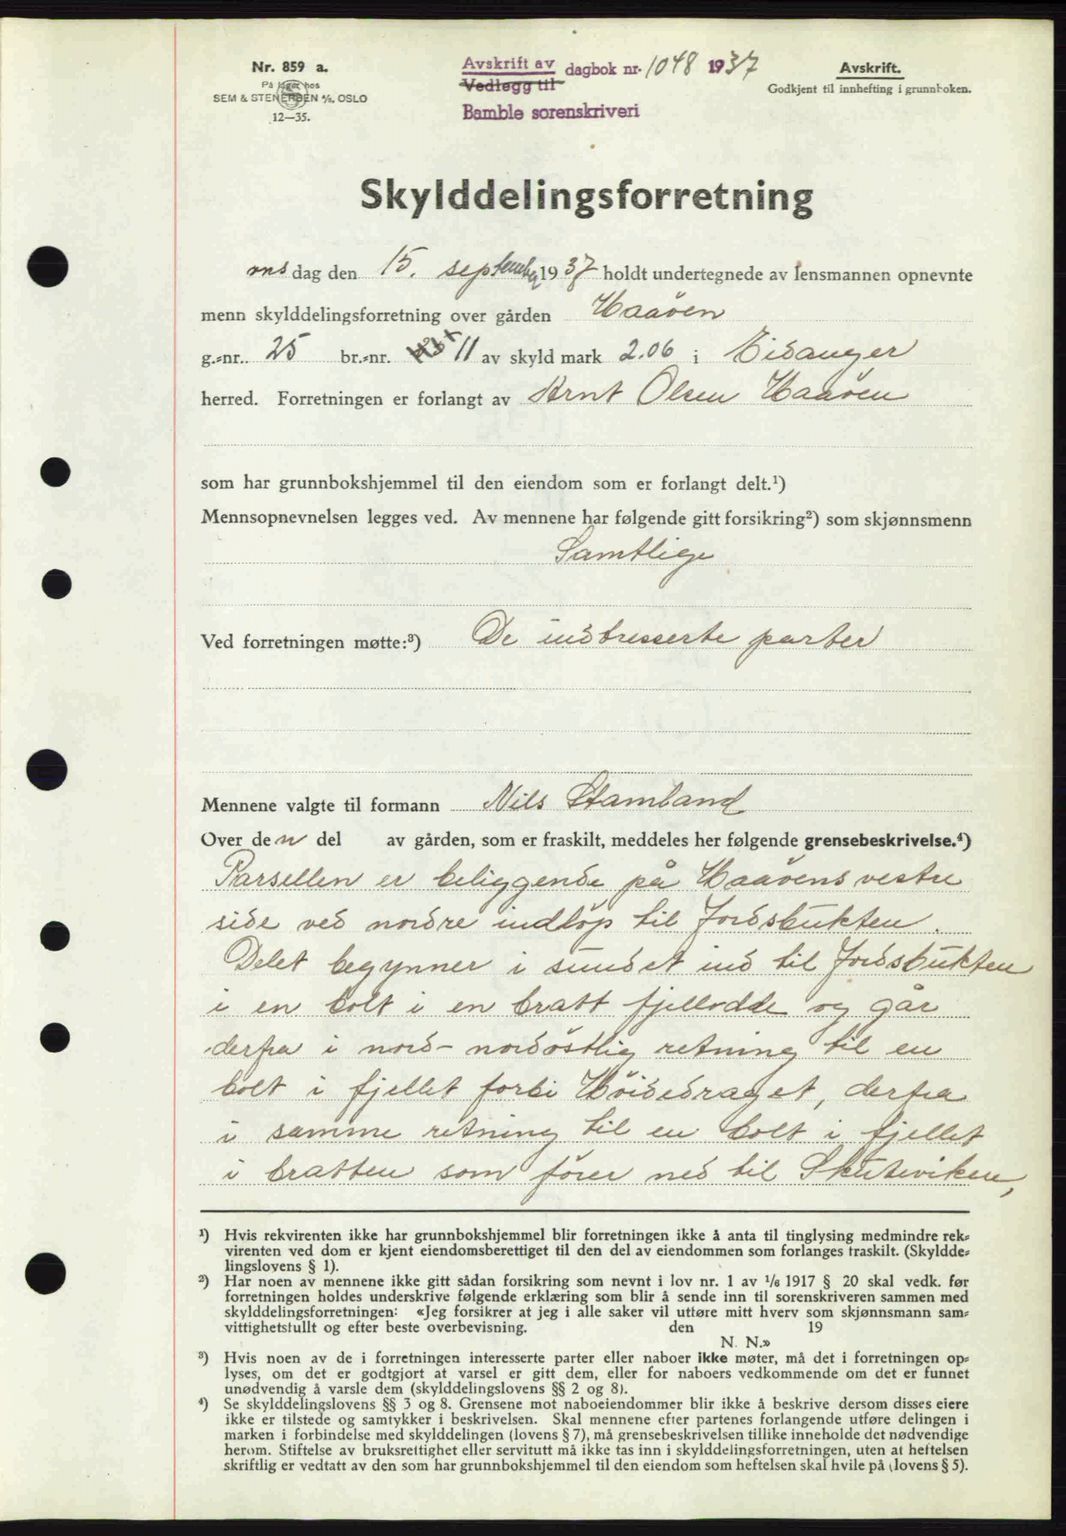 Nr. 859 a.
På lager hos
SEM & STENERSEN A/S, OSLO
12—35.
Avskrift av
Vedlegg til
dagbok nr. 1048 1937
Bamble sorenskriveri
Avskrift.
Godkjent til innhefting i grunnboken.
Skylddelingsforretning
ons dag den 15. september 1937 holdt undertegnede av lensmannen opnevnte
menn skylddelingsforretning over gården Haaöen
g.-nr.. 25 br.-nr. 11 av skyld mark 2.06 i Eidanger
herred. Forretningen er forlangt av Arnt Olsen Haaöen
som har grunnbokshjemmel til den eiendom som er forlangt delt.¹)
Mennsopnevnelsen legges ved. Av mennene har følgende gitt forsikring²) som skjønnsmenn
Samtlige
Ved forretningen møtte:³) De indtresserte parter
Mennene valgte til formann Nils Stamland
Over den del av gården, som er fraskilt, meddeles her følgende grensebeskrivelse.⁴)
Parsellen er beliggende på Haaöens vestre
side ved nordre indlöp til Jordsbukten.
Delet begynner i sundet ind til Jordsbukten
i en bolt i en bratt fjellodde og går
derfra i nord- nordöstlig retning til en
bolt i fjellet forbi Höidedraget, derfra
i samme retning til en bolt i fjellet
i bratten som förer ned til Skuteviken,
¹) Hvis rekvirenten ikke har grunnbokshjemmel blir forretningen ikke å anta til tinglysing medmindre rek-
virenten ved dom er kjent eiendomsberettiget til den del av eiendommen som forlanges fraskilt. (Skyldde-
lingslovens § 1).
²) Har noen av mennene ikke gitt sådan forsikring som nevnt i lov nr. 1 av 1/6 1917 § 20 skal vedk. før
forretningen holdes underskrive følgende erklæring som blir å sende inn til sorenskriveren sammen med
skylddelingsforretningen: «Jeg forsikrer at jeg i alle saker vil utføre mitt hverv som skjønnsmann sam-
vittighetsfullt og efter beste overbevisning. den 19
N. N.»
³) Hvis noen av de i forretningen interesserte parter eller naboer ikke møter, må det i forretningen op-
lyses, om det er godtgjort at varsel er gitt dem, eller for naboers vedkommende om det er funnet
unødvendig å varsle dem (skylddelingslovens §§ 2 og 8).
⁴) Se skylddelingslovens §§ 3 og 8. Grensene mot naboeiendommer blir ikke å beskrive dersom disses eiere
ikke er tilstede og samtykker i beskrivelsen. Skal mennene efter partenes forlangende utføre delingen i
marken i forbindelse med skylddelingen (lovens § 7), må grensebeskrivelsen tillike inneholde det nødvendige
herom. Stiftelse av bruksrettighet eller servitutt må ikke tas inn i skylddelingsforretningen, uten at heftelsen
skriftlig er vedtatt av den som har grunnbokshjemmel til den eiendom som heftelsen skal hvile på (lovens § 5).